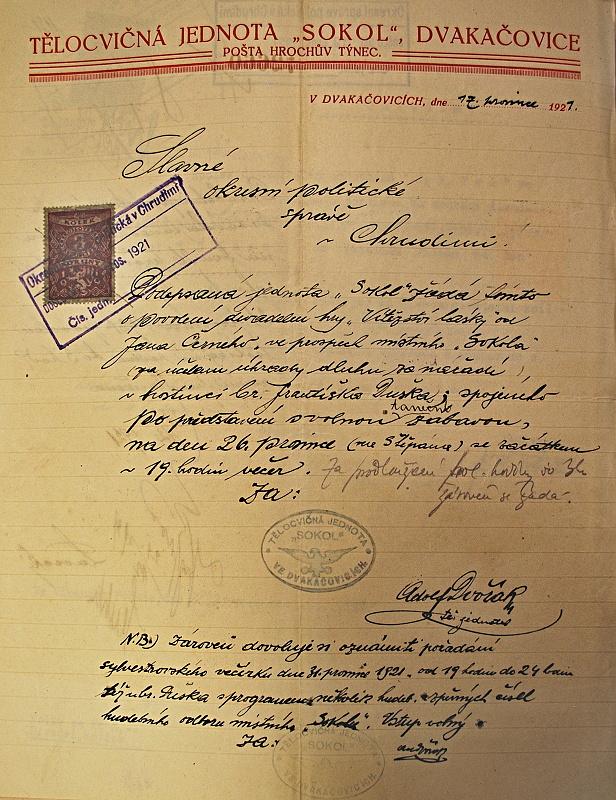 TĚLOCVIČNÁ JEDNOTA „SOKOL“, DVAKAČOVICE
POŠTA HROCHŮV TÝNEC.
V DVAKAČOVICÍCH, dne 17. prosince 1921.
Slavné
okresní politické
správě
v Chrudimi.
KOLEK
1921
Čís. jedn.
Podepsaná jednota „Sokol“ žádá tímto
o povolení divadelní hry „Vítězství lásky“ od
Jana Černého, ve prospěch místního „Sokola“
(za účelem úhrady dluhu za nářadí)
v hostinci br. Františka Duška, spojeného
po představení s volnou taneční zábavou,
na den 26. prosince (na Štěpána) se začátkem
v 19. hodin večer. Za prodloužení pol. hodiny do 3h
zároveň se žádá.
Za:
TĚLOCVIČNÁ JEDNOTA
„SOKOL“
VE DVAKAČOVICÍCH.
Adolf Dvořák
N.B.) Zároveň dovoluje si oznámiti pořádání
sylvestrovského večírku dne 31. prosince 1921 od 19 hodin do 24 hodin
Duška s programem několik hudeb. spůrných čísel
hudebního odboru místního „Sokola“. Vstup volný
Za:
TĚLOCVIČNÁ JEDNOTA
SOKOL
VE DVAKAČOVICÍCH.